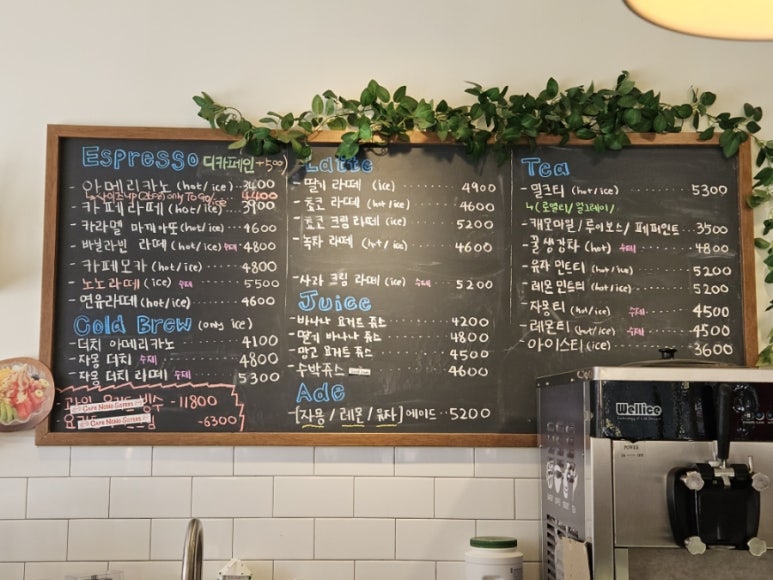 Espresso 디카페인 +500)
아메리카노 (hot/ice) 3400
↳사이즈UP(32oz) only To Go/ice 4400
- 카페라떼 (hot/ice) 3900
- 카라멜 마끼아또 (hot/ice) 4600
- 바닐라빈 라떼 (hot/ice) 수제 4800
- 카페모카 (hot/ice) 4800
- 노노라떼 (ice) 수제 5500
- 연유라떼 (hot/ice) 4600
Cold Brew (only ice)
- 더치 아메리카노 4100
- 자몽 더치 수제 4800
- 자몽 더치 라떼 수제 5300
-11800
CAFE NONO SUYEO
-6300
CAFE NONO SUYEO
Latte
- 딸기 라떼 (ice) 4900
- 초코 라떼 (hot/ice) 4600
- 초코 크림 라떼 (ice) 5200
- 녹차 라떼 (hot/ice) 4600
- 사라 크림 라떼 (ice) 수제 5200
Juice
- 바나나 요거트 쥬스 4200
- 딸기 바나나 쥬스 4800
- 망고 요거트 쥬스 4500
- 수박쥬스 4600
Ade
- [자몽 / 레몬 / 유자] 에이드 5200
Tea
- 밀크티 (hot/ice) 5300
↳ (로얄티/얼그레이/
- 캐모마일/루이보스/페퍼민트 3500
- 꿀 생강차 (hot) 수제 4800
- 유자 민트티 (hot/ice) 5200
- 레몬 민트티 (hot/ice) 5200
- 자몽티 (hot/ice) 수제 4500
- 레몬티 (hot/ice) 수제 4500
- 아이스티 (ice) 3600
Wellice
POWER